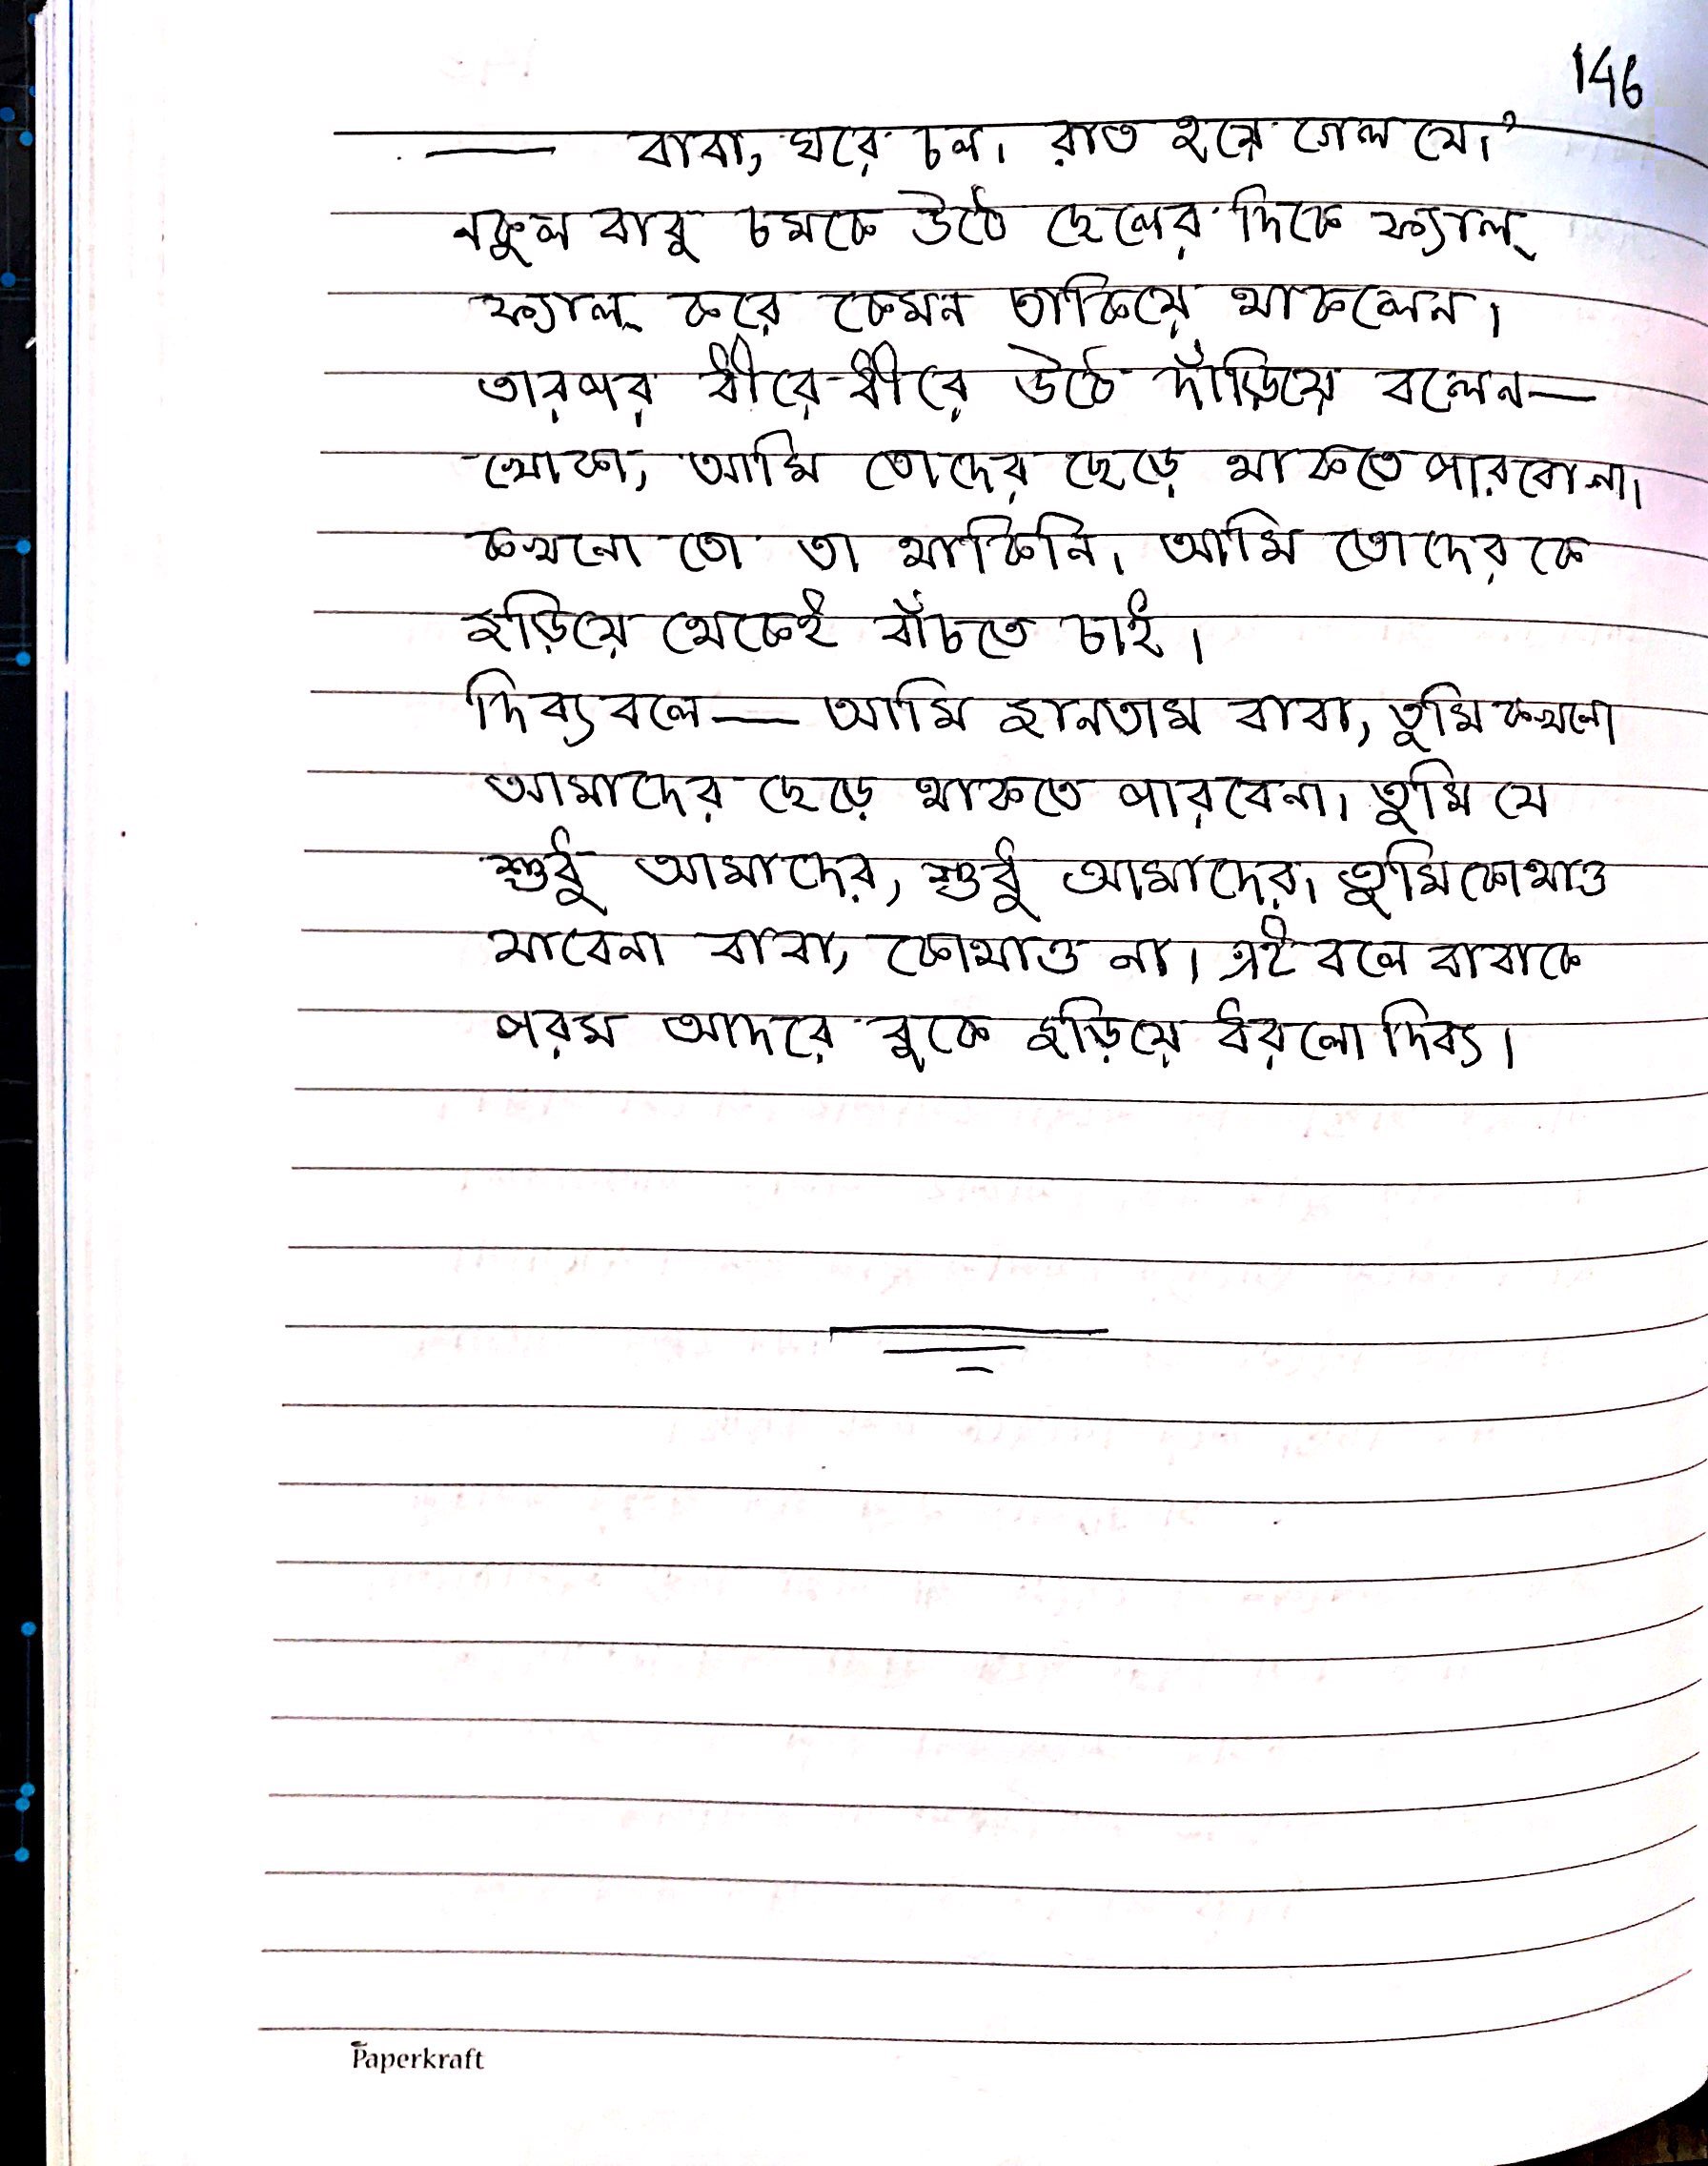 146
— বাবা, ঘরে চল। রাত হয়ে গেল যে।
নকুল বাবু চমকে উঠে ছেলের দিকে ফ্যাল্
ফ্যাল্ করে কেমন তাকিয়ে থাকলেন।
তারপর ধীরে-ধীরে উঠে দাঁড়িয়ে বলেন—
খোকা, আমি তোদের ছেড়ে থাকতে পারবো না।
কখনো তো তা থাকিনি। আমি তোদেরকে
জড়িয়ে থেকেই বাঁচতে চাই।
দিব্য বলে— আমি জানতাম বাবা, তুমি কখনো
আমাদের ছেড়ে থাকতে পারবেনা। তুমি যে
শুধু আমাদের, শুধু আমাদের। তুমি কোথাও
যাবেনা বাবা, কোথাও না। এই বলে বাবাকে
পরম আদরে বুকে জড়িয়ে ধরলো দিব্য।
Paperkraft